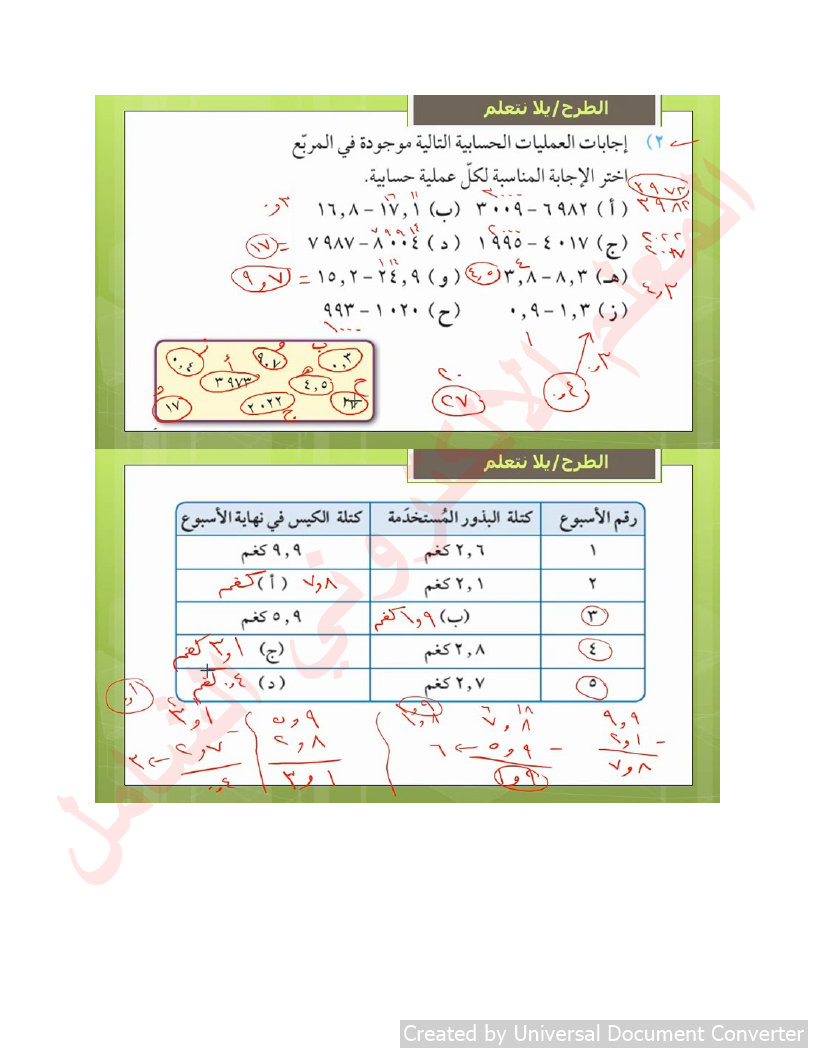 الطرح/يلا نتعلم
٢) إجابات العمليات الحسابية التالية موجودة في المربّع
اختر الإجابة المناسبة لكلّ عملية حسابية.
٣٩٧٣
٣٩٨٢
٣٠٠٠
(أ) ٦٩٨٢ – ٣٠٠٩ (ب) ١٧,١ – ١٦,٨
(ج) ٤٠١٧ – ١٩٩٥ (د) ٨٠٠٤ – ٧٩٨٧ = ١٧
٢٠٢٢
(هـ) ٨,٣ – ٣,٨ ٤,٥ (و) ٢٤,٩ – ١٥,٢ = ٩,٧
٤,٣
(ز) ١,٣ – ٠,٩ (ح) ١٠٢٠ – ٩٩٣
١٠٠٠
ب
٠,٣ ٩,٧ ٠,٤
أ هـ ح
٤,٥ ٣٩٧٣
٢٧ ٢٠٢٢ ١٧
ج
٢٠
٢٧
٠,٤
٠,٣
الطرح/يلا نتعلم
رقم الأسبوع كتلة البذور المُستخدَمة كتلة الكيس في نهاية الأسبوع
١ ٢,٦ كغم ٩,٩ كغم
٢ ٢,١ كغم (أ) ٧,٨ كغم
٣ (ب) ١,٩ كغم ٥,٩ كغم
٤ ٢,٨ كغم (ج) ٣,١ كغم
٥ ٢,٧ كغم (د) ٠,٤ كغم
٩,٩ ٧,٨ ٥,٩ ٣,١
– ٢,١ – ٥,٩ ← ٦ ٢,٨ – ٢,٧ ← ٣
٧,٨ ١,٩ ٣,١ ٠,٤
المعلم الالكتروني الشامل
Created by Universal Document Converter